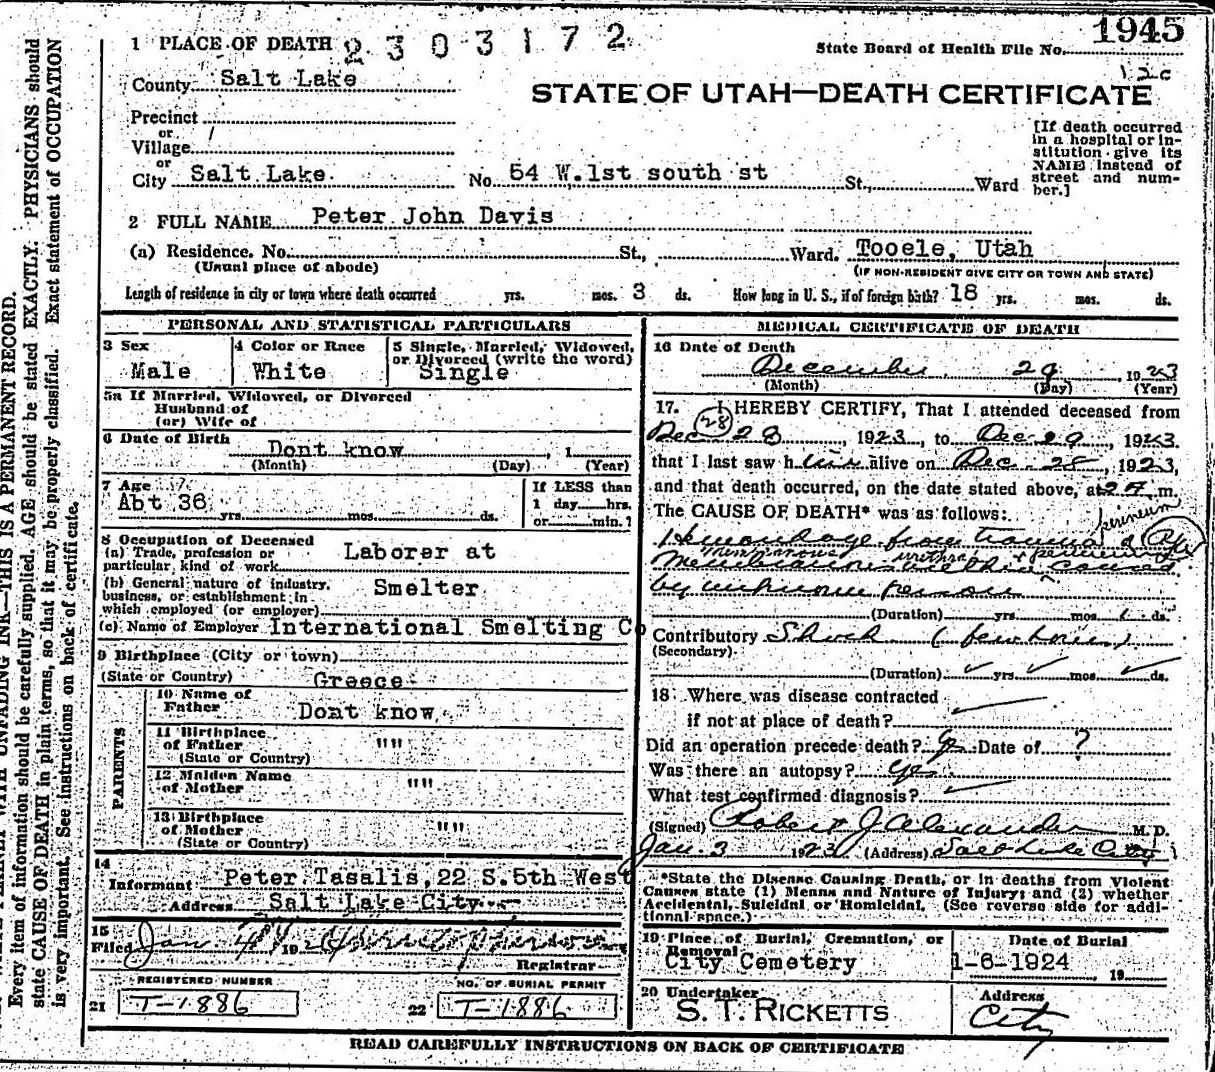 1945
1 PLACE OF DEATH 2303172
State Board of Health File No.
County Salt Lake
STATE OF UTAH—DEATH CERTIFICATE
Precinct
or
Village
or
City Salt Lake. No. 54 W.1st south st St., Ward
[If death occurred in a hospital or institution give its NAME instead of street and number.]
2 FULL NAME Peter John Davis
(a) Residence. No. St., Ward. Tooele, Utah
(Usual place of abode) (IF NON-RESIDENT GIVE CITY OR TOWN AND STATE)
Length of residence in city or town where death occurred yrs. mos. 3 ds. How long in U. S., if of foreign birth? 18 yrs. mos. ds.
PERSONAL AND STATISTICAL PARTICULARS
3 Sex Male
4 Color or Race White
5 Single, Married, Widowed, or Divorced (write the word) Single
5a If Married, Widowed, or Divorced
Husband of
(or) Wife of
6 Date of Birth Dont know , 1
(Month) (Day) (Year)
7 Age Abt 36
yrs. mos. ds.
If LESS than
1 day hrs.
or min.?
8 Occupation of Deceased
(a) Trade, profession or particular, kind of work Laborer at
(b) General nature of industry, business, or establishment in which employed (or employer) Smelter
(c) Name of Employer International Smelting Co
9 Birthplace (City or town)
(State or Country) Greece
PARENTS
10 Name of Father Dont know
11 Birthplace of Father (State or Country) """"
12 Maiden Name of Mother """"
13 Birthplace of Mother (State or Country) """"
14
Informant Peter Tasalis, 22 S.5th West
Address Salt Lake City
15
Filed Jan 4 1924
Registrar
REGISTERED NUMBER
21 T-1886
NO. OF BURIAL PERMIT
22 T-1886
MEDICAL CERTIFICATE OF DEATH
16 Date of Death
December 29, 1923
(Month) (Day) (Year)
17. I HEREBY CERTIFY, That I attended deceased from
(28)
Dec 28, 1923, to Dec 29, 1923.
that I last saw him alive on Dec. 28, 1923,
and that death occurred, on the date stated above, at 2 A. m.
The CAUSE OF DEATH* was as follows:
perineum
Hemorrhage from trauma
membranous urethra & perineum
caused
by unknown person
(Duration) yrs. mos. 1 ds.
Contributory Shock (few hours)
(Secondary)
(Duration) yrs. mos. ds.
18 Where was disease contracted
if not at place of death?
Did an operation precede death? Date of ?
Was there an autopsy? yes
What test confirmed diagnosis?
(Signed) Robert J Alexander M. D.
Jan. 3 1923 (Address) Salt Lake City
*State the Disease Causing Death, or in deaths from Violent
Causes state (1) Means and Nature of Injury; and (2) whether
Accidental, Suicidal or Homicidal. (See reverse side for additional space.)
19 Place of Burial, Cremation, or Removal City Cemetery
Date of Burial 1-6-1924, 19
20 Undertaker S. T. RICKETTS
Address City
READ CAREFULLY INSTRUCTIONS ON BACK OF CERTIFICATE
UNFADING INK—THIS IS A PERMANENT RECORD.
Every item of information should be carefully supplied. AGE should be stated EXACTLY. PHYSICIANS should
state CAUSE OF DEATH in plain terms, so that it may be properly classified. Exact statement of OCCUPATION
is very important. See instructions on back of certificate.